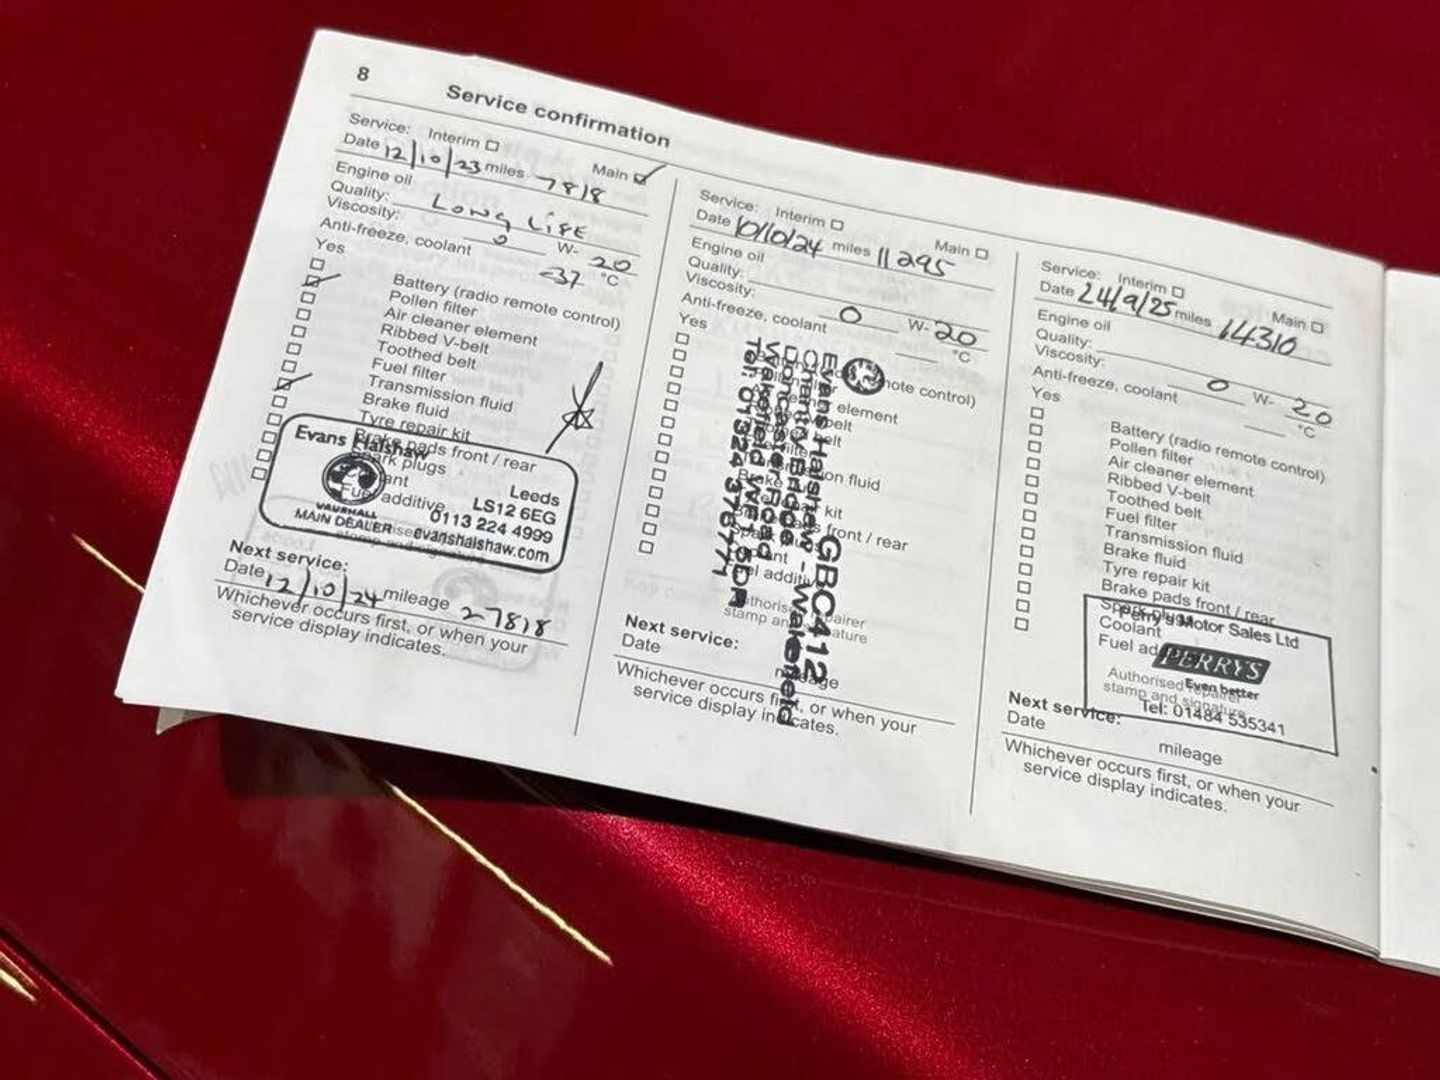 8
Service confirmation
Service: Interim Main
Date 12/10/23 miles 7818
Engine oil
Quality: Long Life
Viscosity: 0 W- 20
Anti-freeze, coolant -37 °C
Yes
Battery (radio remote control)
Pollen filter
Air cleaner element
Ribbed V-belt
Toothed belt
Fuel filter
Transmission fluid
Brake fluid
Tyre repair kit
Brake pads front / rear
Spark plugs
Fuel additive
Evans Halshaw
VAUXHALL
Leeds
LS12 6EG
0113 224 4999
MAIN DEALER evanshalshaw.com
Next service:
Date 12/10/24 mileage 27818
Whichever occurs first, or when your
service display indicates.
Service: Interim Main
Date 10/10/24 miles 11295
Engine oil
Quality:
Viscosity: 0 W- 20
Anti-freeze, coolant °C
Yes
Evans Halshaw - Wakefield
Chantry Bridge GBC412
Doncaster Road
Wakefield WF1 5DR
Tel: 01924 376771
Next service:
Date
mileage
Whichever occurs first, or when your
service display indicates.
Service: Interim Main
Date 24/9/25 miles 14310
Engine oil
Quality:
Viscosity: 0 W- 20
Anti-freeze, coolant °C
Yes
Battery (radio remote control)
Pollen filter
Air cleaner element
Ribbed V-belt
Toothed belt
Fuel filter
Transmission fluid
Brake fluid
Tyre repair kit
Brake pads front / rear
Spark plugs
Coolant
Perry's Motor Sales Ltd
PERRYS
Even better
Tel: 01484 535341
Authorised repairer
stamp and signature
Next service:
Date
mileage
Whichever occurs first, or when your
service display indicates.